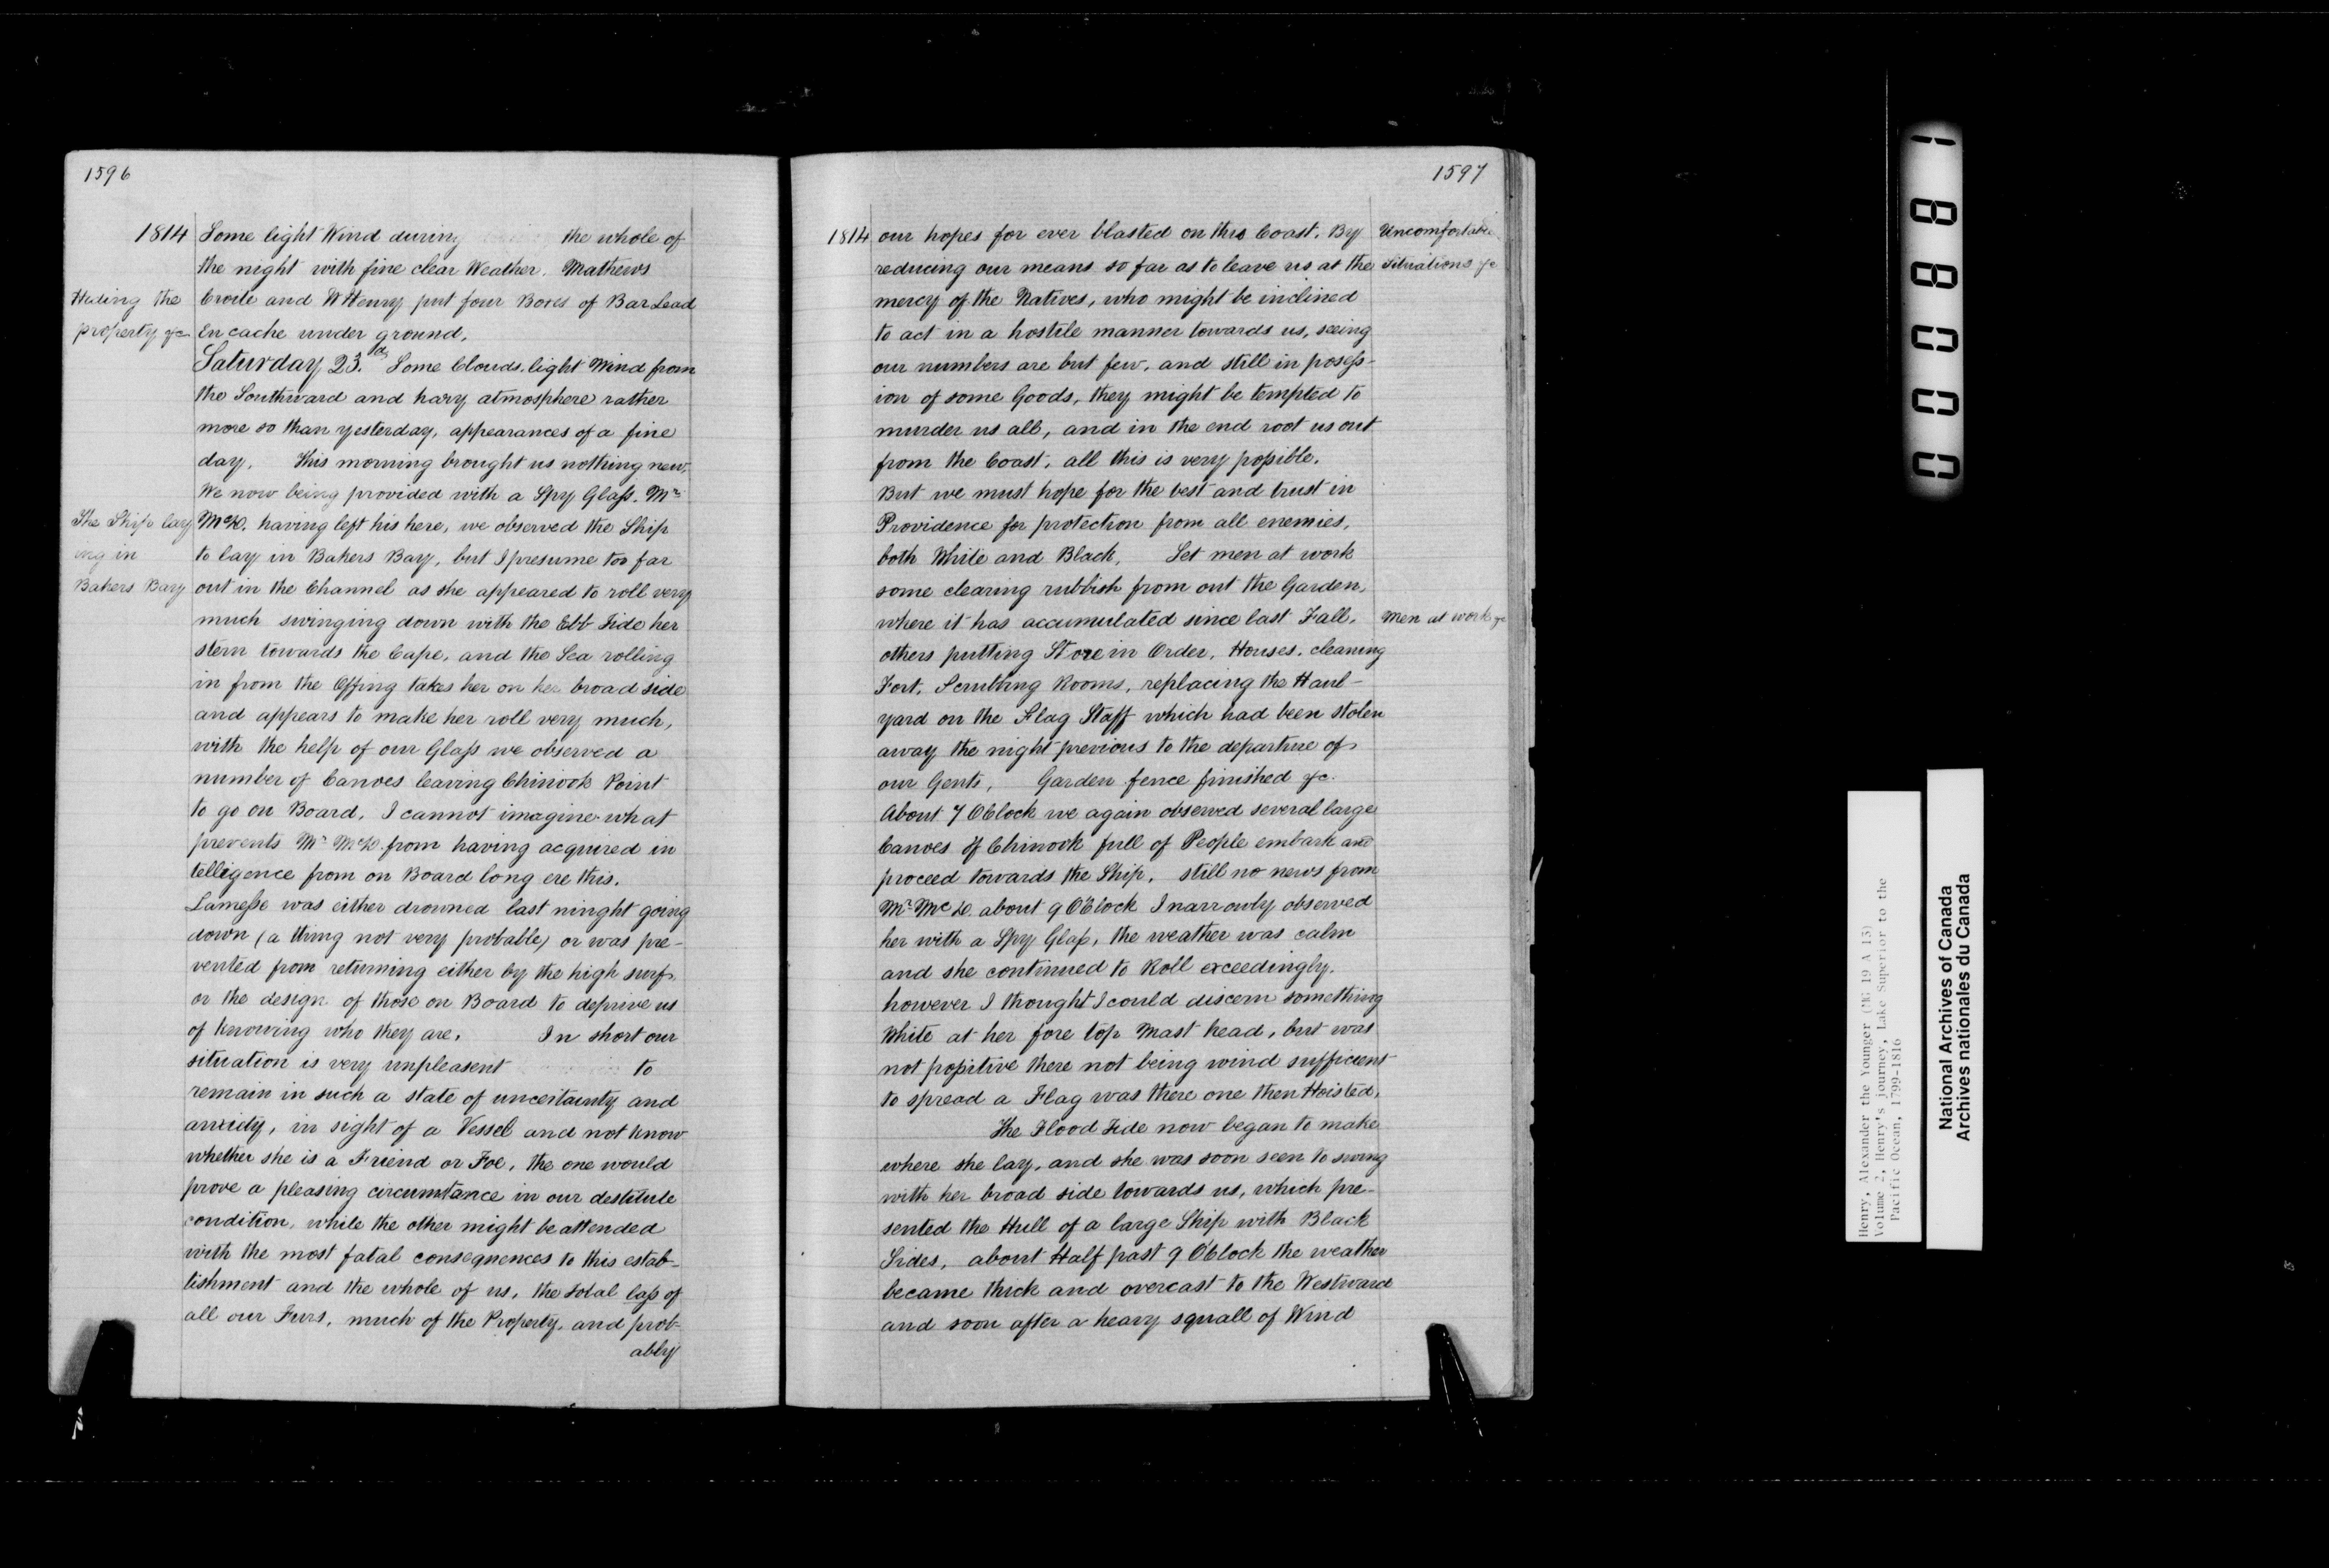 1596
1814 Some light Wind during the whole of
the night with fine clear Weather. Mathews
Hiding the
property &c
Croile and W Henry put four Boxes of Bar Lead
En cache under ground.
Saturday 23.d Some Clouds. light Wind from
the Southward and hazy atmosphere rather
more so than yesterday, appearances of a fine
day. This morning brought us nothing new,
We now being provided with a Spy Glass. Mr
The Ship lay
ing in
Bakers Bay
McD. having left his here, we observed the Ship
to lay in Bakers Bay, but I presume too far
out in the Channel as she appeared to roll very
much swinging down with the Ebb Tide her
stern towards the Cape, and the Sea rolling
in from the Offing takes her on her broad side
and appears to make her roll very much,
with the help of our Glass we observed a
number of Canoes leaving Chinook Point
to go on Board. I cannot imagine what
prevents Mr McD. from having acquired in
telligence from on Board long ere this.
Lamesse was either drowned last ninght going
down (a thing not very probable) or was pre-
vented from returning either by the high surf
or the design of those on Board to deprive us
of knowing who they are. In short our
situation is very unpleasent to
remain in such a state of uncertainty and
anxiety, in sight of a Vessel and not know
whether she is a Friend or Foe, the one would
prove a pleasing circumtance in our destitute
condition, while the other might be attended
with the most fatal consequences to this estab-
lishment and the whole of us, the total lass of
all our Furs, much of the Property, and prob-
ably
1597
1814 our hopes for ever blasted on this Coast. By
Uncomfortable
Situations &c
reducing our means so far as to leave us at the
mercy of the Natives, who might be inclined
to act in a hostile manner towards us, seeing
our numbers are but few, and still in posess-
ion of some Goods, they might be tempted to
murder us all, and in the end root us out
from the Coast, all this is very possible.
But we must hope for the best and trust in
Providence for protection from all enemies,
both White and Black. Set men at work
some clearing rubbish from out the Garden,
where it has accumulated since last Fall.
Men at work &c
others putting Store in Order, Houses, cleaning
Fort, Scrubbing Rooms, replacing the Haul-
yard on the Flag Staff which had been stolen
away the night previous to the departure of
our Gents, Garden fence finished &c.
About 7 OClock we again observed several large
Canoes of Chinook full of People embark and
proceed towards the Ship, still no news from
Mr McD. about 9 O'Clock I narrowly observed
her with a Spy Glass, the weather was calm
and she continued to Roll exceedingly.
however I thought I could discern something
White at her fore top Mast head, but was
not possitive there not being wind sufficient
to spread a Flag was there one then Hoisted.
The Flood Tide now began to make
where she lay, and she was soon seen to swing
with her broad side towards us, which pre-
sented the Hull of a large Ship with Black
Sides, about Half past 9 O'Clock the weather
became thick and overcast to the Westward
and soon after a heavy squall of Wind
000881
Henry, Alexander the Younger (MG 19 A 13)
Volume 2, Henry's journey, Lake Superior to the
Pacific Ocean, 1799-1816
National Archives of Canada
Archives nationales du Canada